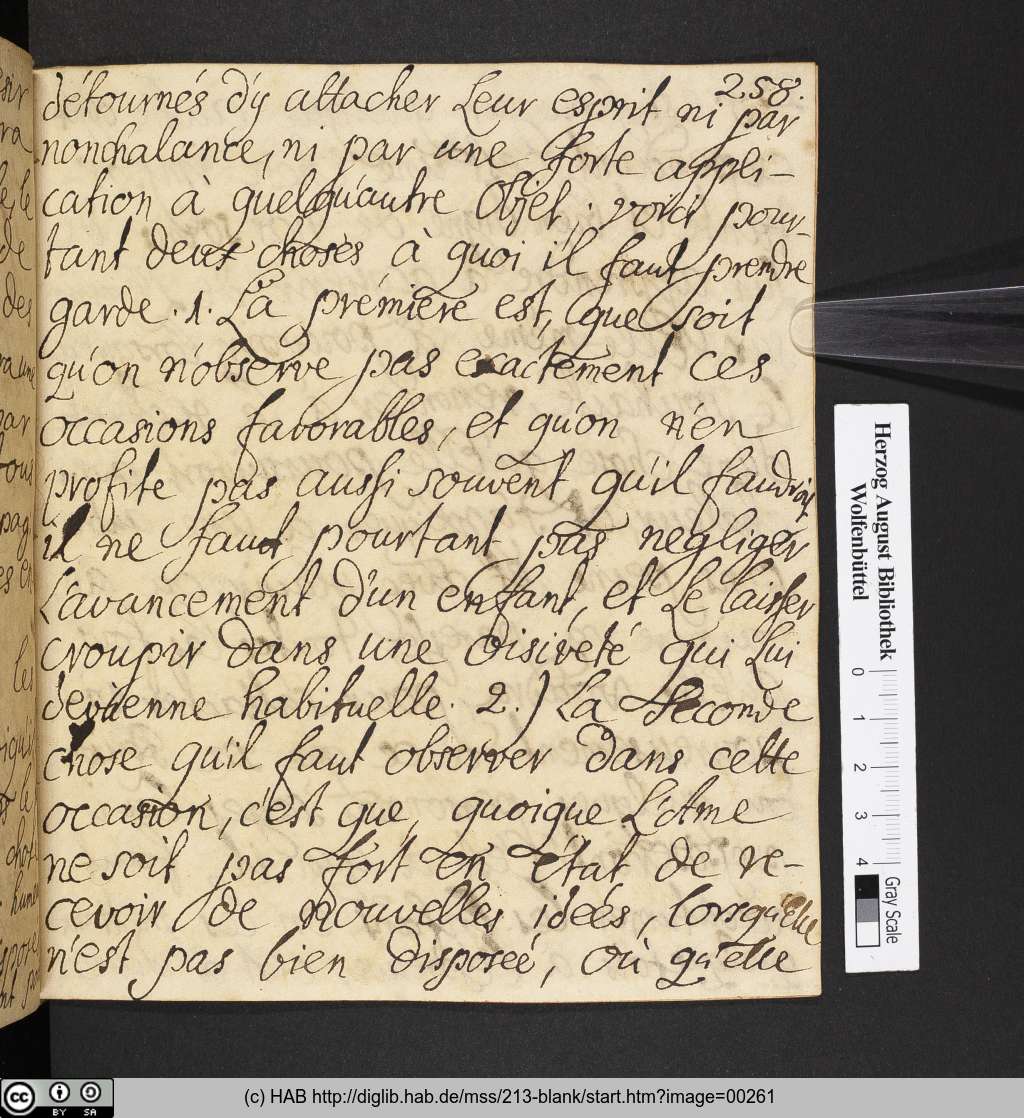 258.
détournés d'y attacher Leur esprit ni par
nonchalance, ni par une forte appli-
cation à quelqu'autre Objet; voici pour-
tant deux choses à quoi il faut prendre
garde. 1. La prémiere est, que soit
qu'on n'observe pas exactement ces
occasions favorables, et qu'on n'en
profite pas aussi souvent qu'il faudroit
il ne faut pourtant pas negliger
L'avancement d'un enfant, et Le laisser
croupir dans une Oisiveté qui Lui
devienne habituelle. 2.) La Seconde
chose qu'il faut observer dans cette
occasion, c'est que, quoique L'Ame
ne soit pas fort en état de re-
cevoir de nouvelles ideés, lorsqu'elle
n'est pas bien disposeé, Où qu'elle
Herzog August Bibliothek
Wolfenbüttel
0 1 2 3 4
Gray Scale
(c) HAB http://diglib.hab.de/mss/213-blank/start.htm?image=00261
cc BY SA